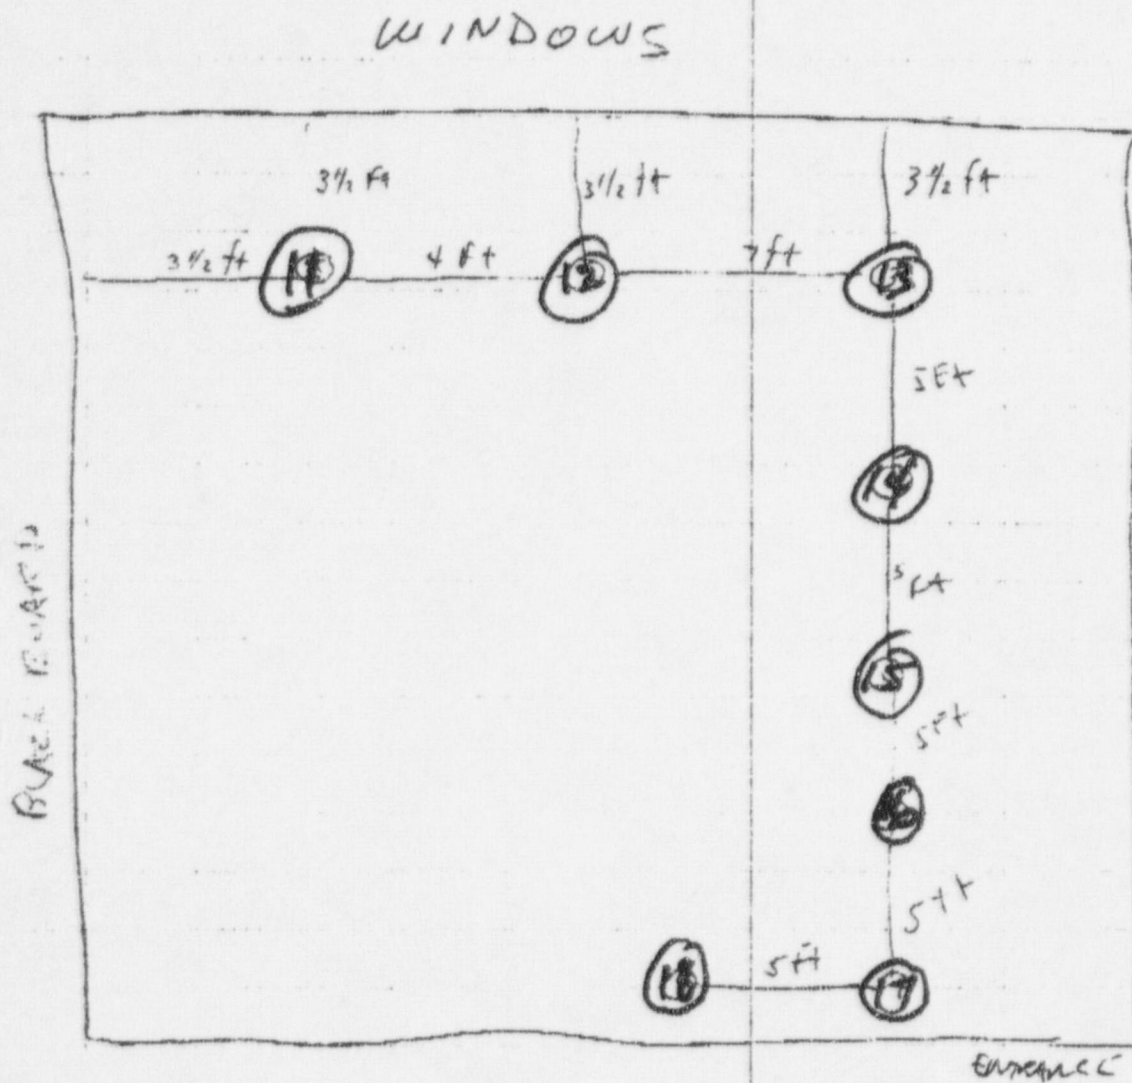 WINDOWS
3½ ft
3½ ft
3½ ft
3½ ft
11
4 ft
12
7 ft
13
5 ft
14
5 ft
15
5 ft
16
5 ft
18
5 ft
17
BLACK BOARD
ENTRANCE